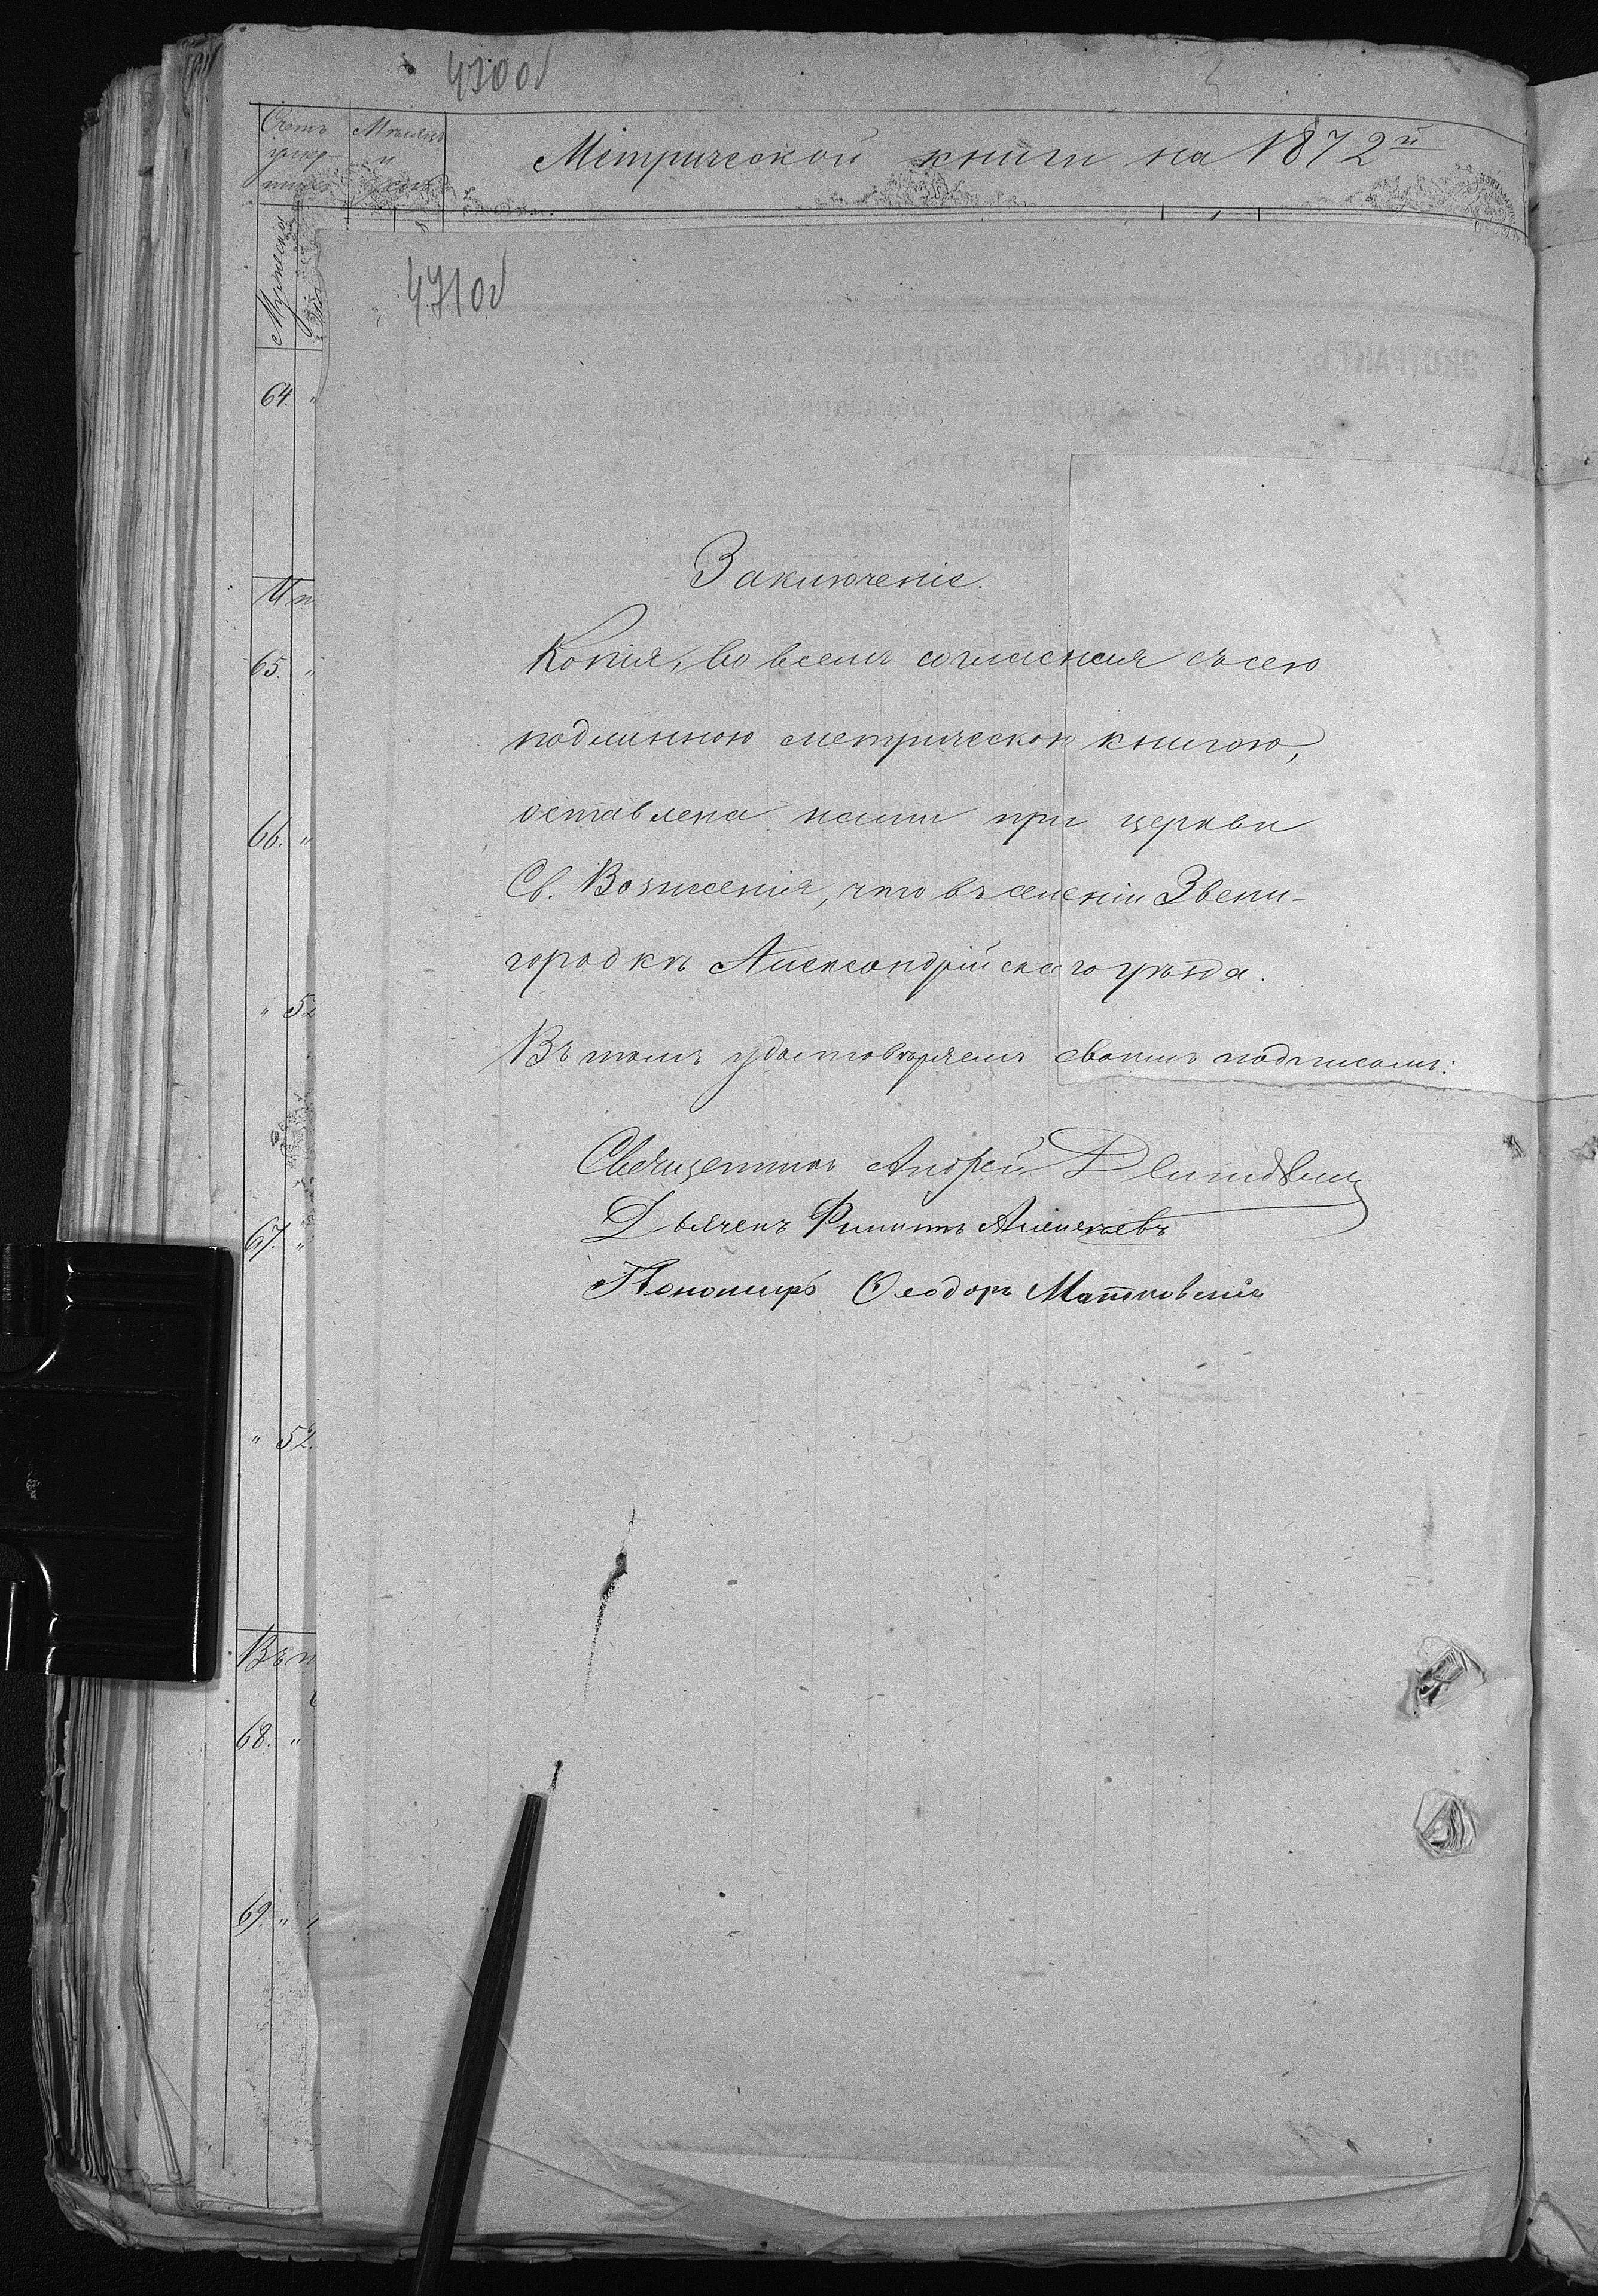 Счетъ умер-шихъ
Мѣсяцъ и день
Метрической книги на 1872й
Мужеска
64.
65.
66.
" 52
67.
" 52.
68.
69.
Заключеніе.
Копія, во всемъ согласная съ сею
подлинною метрическою книгою,
оставлена нами при церкви
Св. Вознесенія, что въ селеніи Звени-
городкѣ Александрійскаго уѣзда.
Въ томъ удостовѣряемъ своимъ подписомъ:
Священникъ Андрей
Дьячекъ Филиппъ Алексѣевъ
Пономарь Ѳеодоръ Матковскій